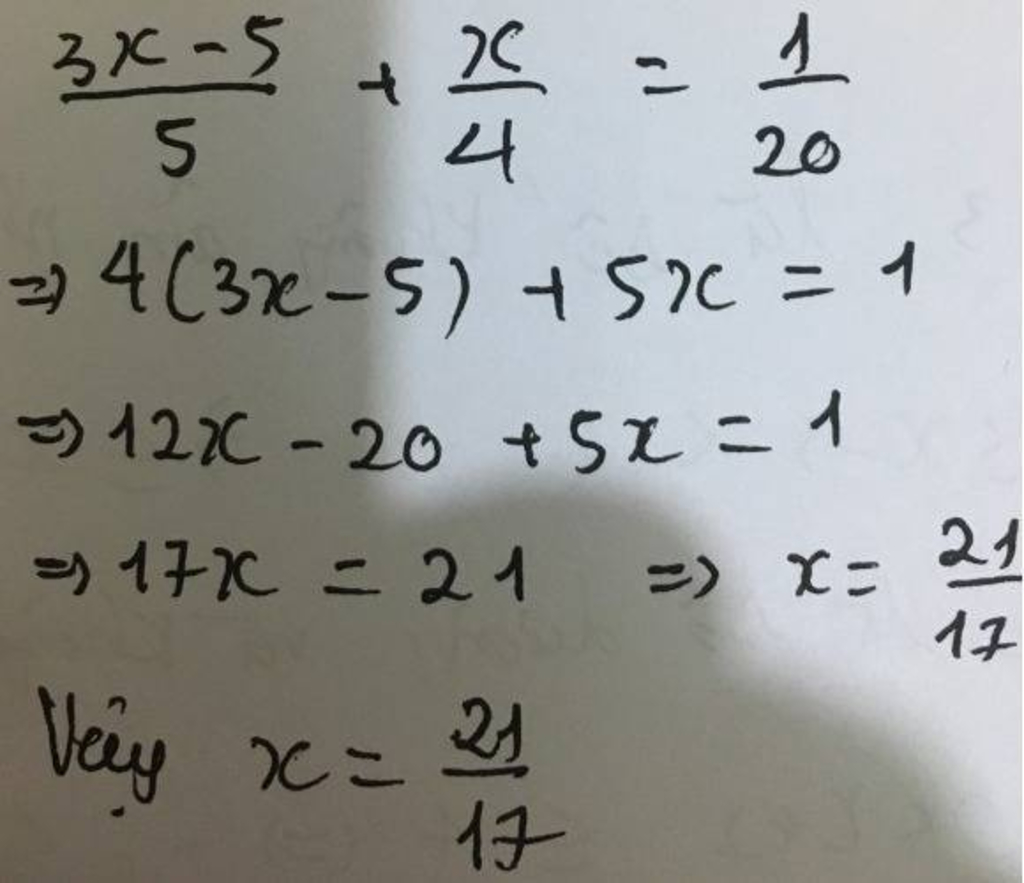 (3x - 5)/5 + x/4 = 1/20
=> 4(3x - 5) + 5x = 1
=> 12x - 20 + 5x = 1
=> 17x = 21 => x = 21/17
Vậy x = 21/17